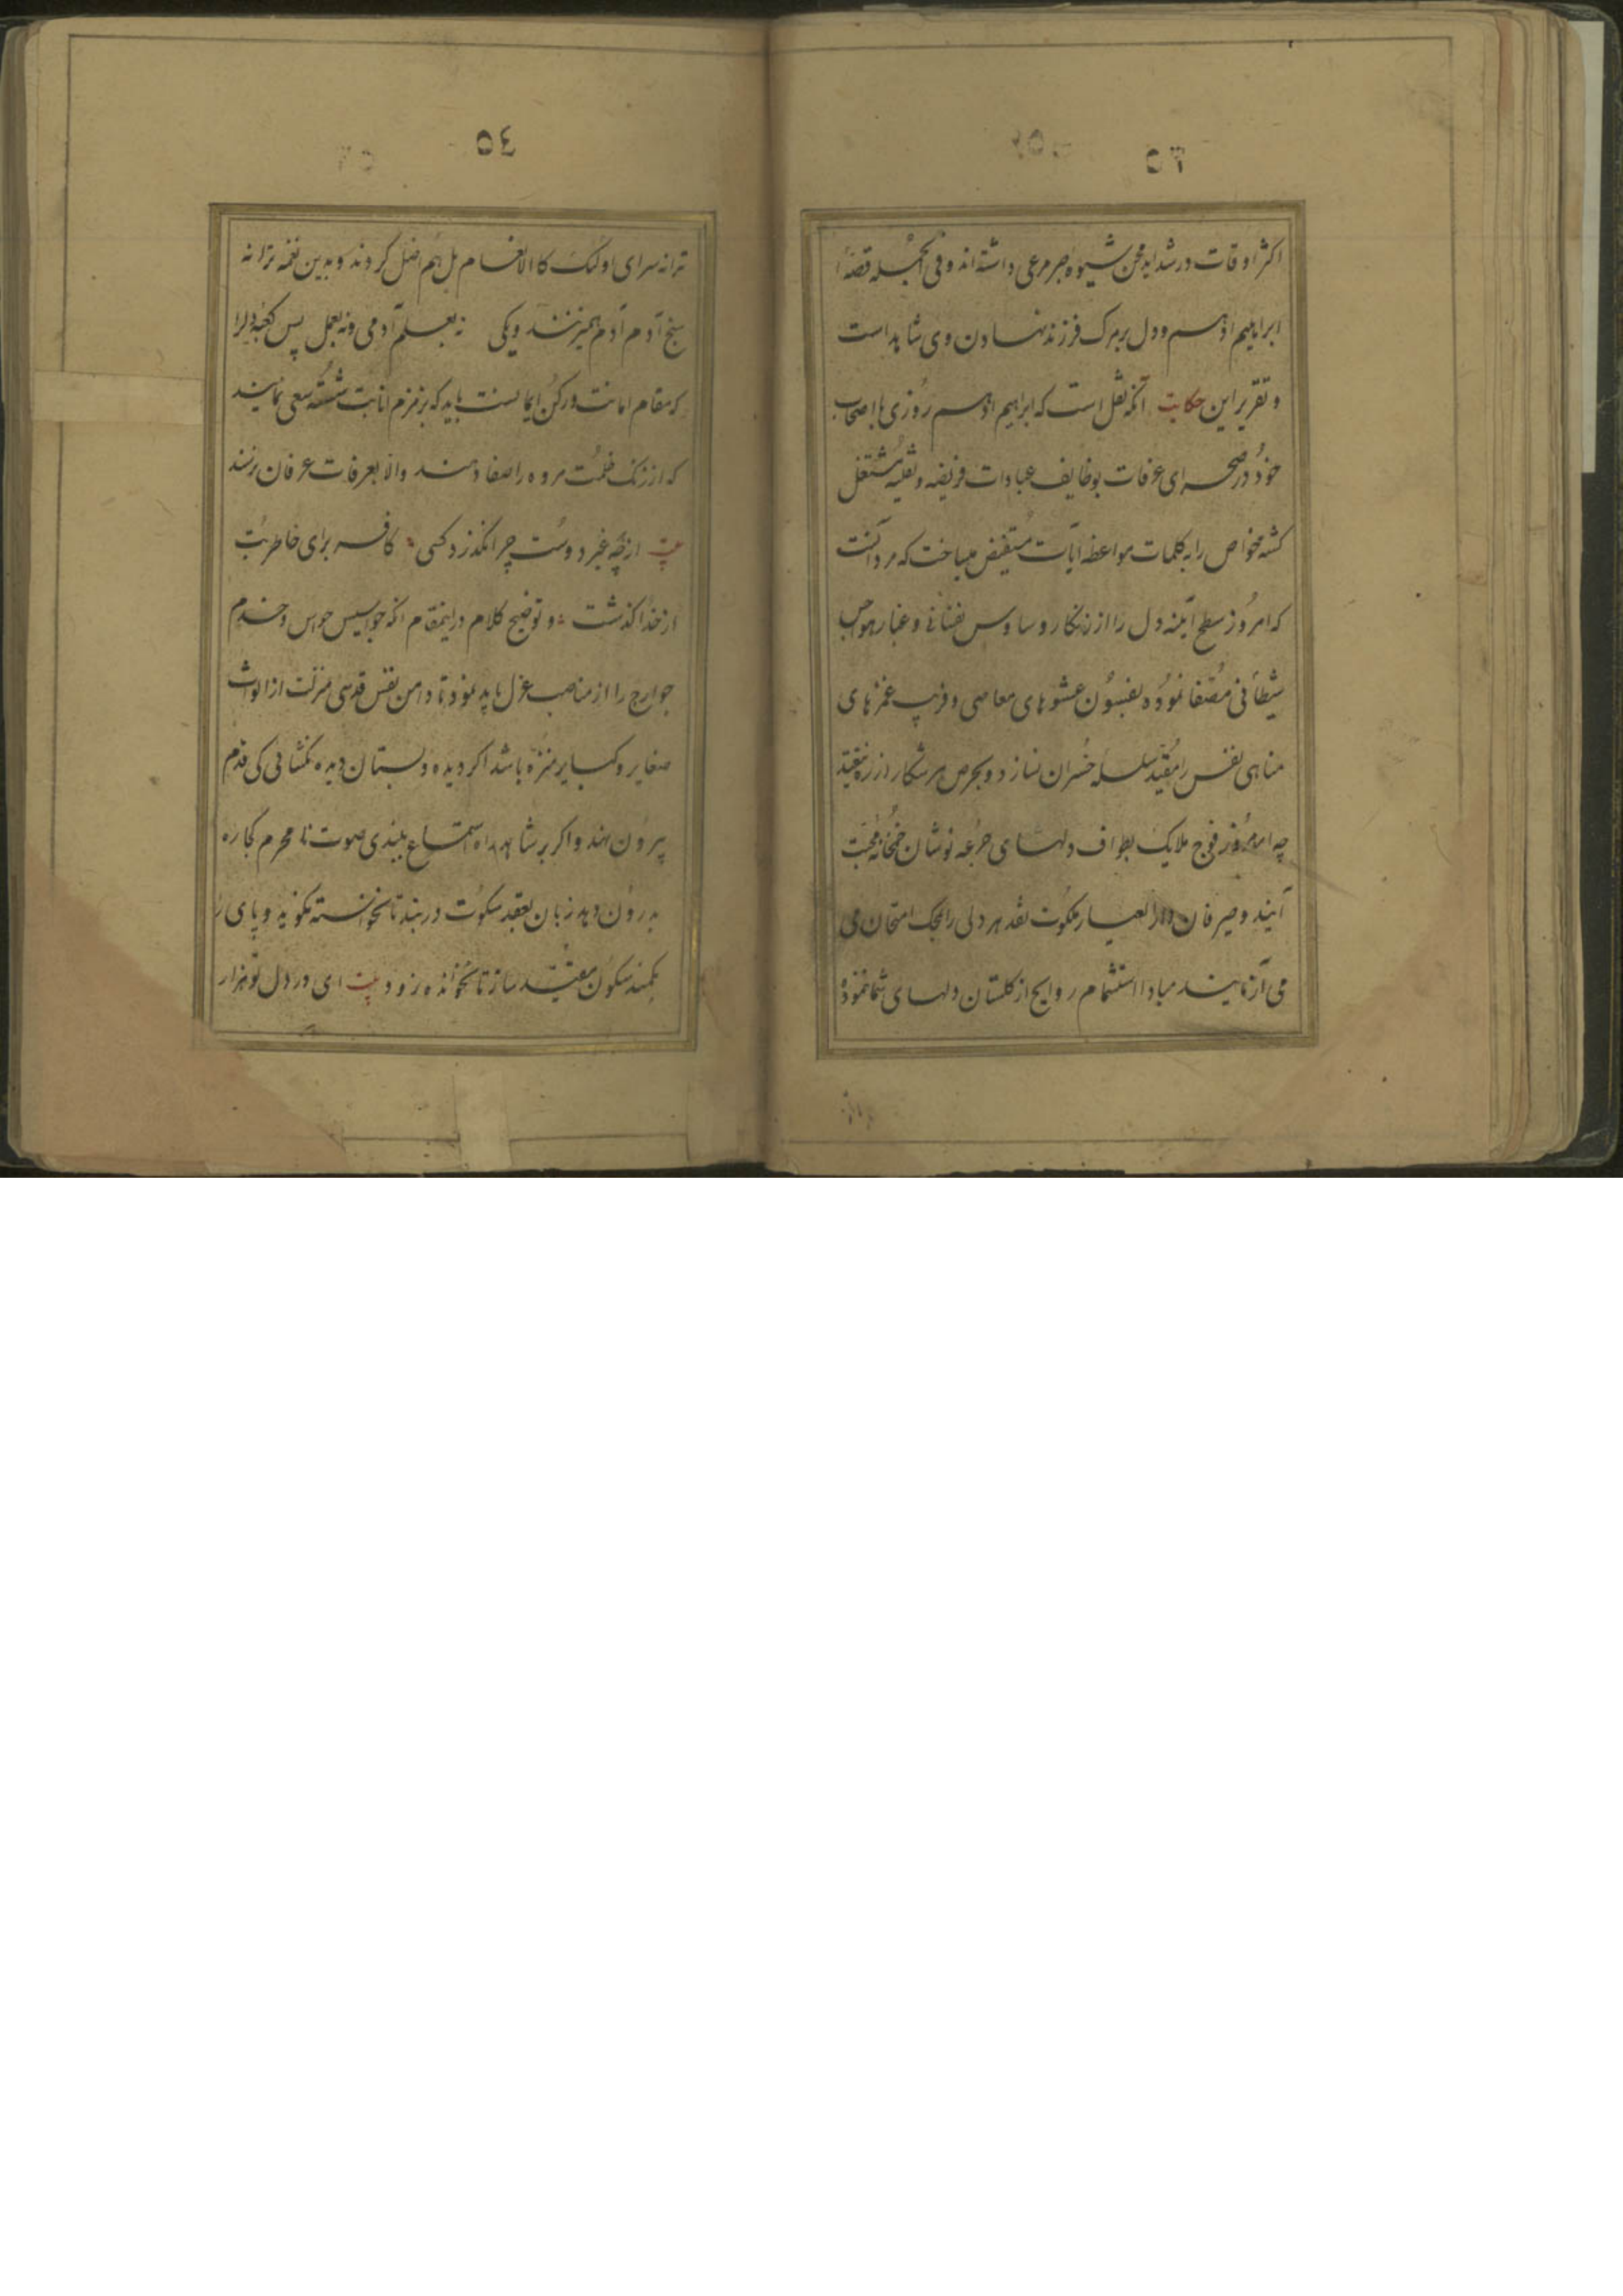 اکثر اوقات در شداید و محن شیوه صبر مرعی داشته اند و فی الجمله قصهٔ
ابراهیم ادهم و دل بر مرک فرزند نهادن وی شاهد است
و تقریر این حکایت آنکه نقل است که ابراهیم ادهم روزی با اصحاب
خود در صحرای عرفات بوظایف عبادات فریضه و نفلیه مشتغل
کشته خواص را به کلمات مواعظ آیات مستفیض میساخت که مرد آنست
که امروز سطح آینه دل را از زنکار وساوس نفسانی و غبار هواجس
شیطانی مصفا نموده بفسون عشوهای معاصی و فریب غمزهای
مناهی نفس را مقید سلسله خسران نسازد و بحرص هر شکار از ره نیفتد
چه امروز فوج ملایک بطواف دلهای جرعه نوشان خمخانه محبت
آیند و صیرفان دار العیار ملکوت نقد هر دلی را بمحک امتحان می
می آزمایند مبادا استشمام روایح از کلستان دلهای شما نموده
٥٤
ترانه سرای اولئک کالانعام بل هم اضل کردند و بدین نغمه ترانه
سنج آدم آدم همیزنند ویکی نه بعلم آدمی و نه بعمل پس کعبه دلرا
که مقام امانت و رکن ایمانست باید که بزمزم انابت شسته سعی نمایند
که از زنک ظلمت مروه را صفا دهند والا بعرفات عرفان نرسند
بیت از هر چه غیر دوست چرا نکذرد کسی کافر برای خاطر بت
از خدا کذشت و توضیح کلام در اینمقام آنکه جواسیس حواس و خدم
جوارح را از مناصب عزل باید نمود تا دامن نفس قدسی منزلت از الواث
صغایر و کبایر منزه باشد اکر دیده و بستان دیده نکشائی کی قدم
بیرون نهد و اکر بر شاهراه استماع بلندی صوت نا محرم کجا ره
بدرون دهد زبان بعقد سکوت در بند تا نخواسته نکوید و پای را
بکمند سکون مقید ساز تا نخوانده نرود بیت ای در دل تو هزار